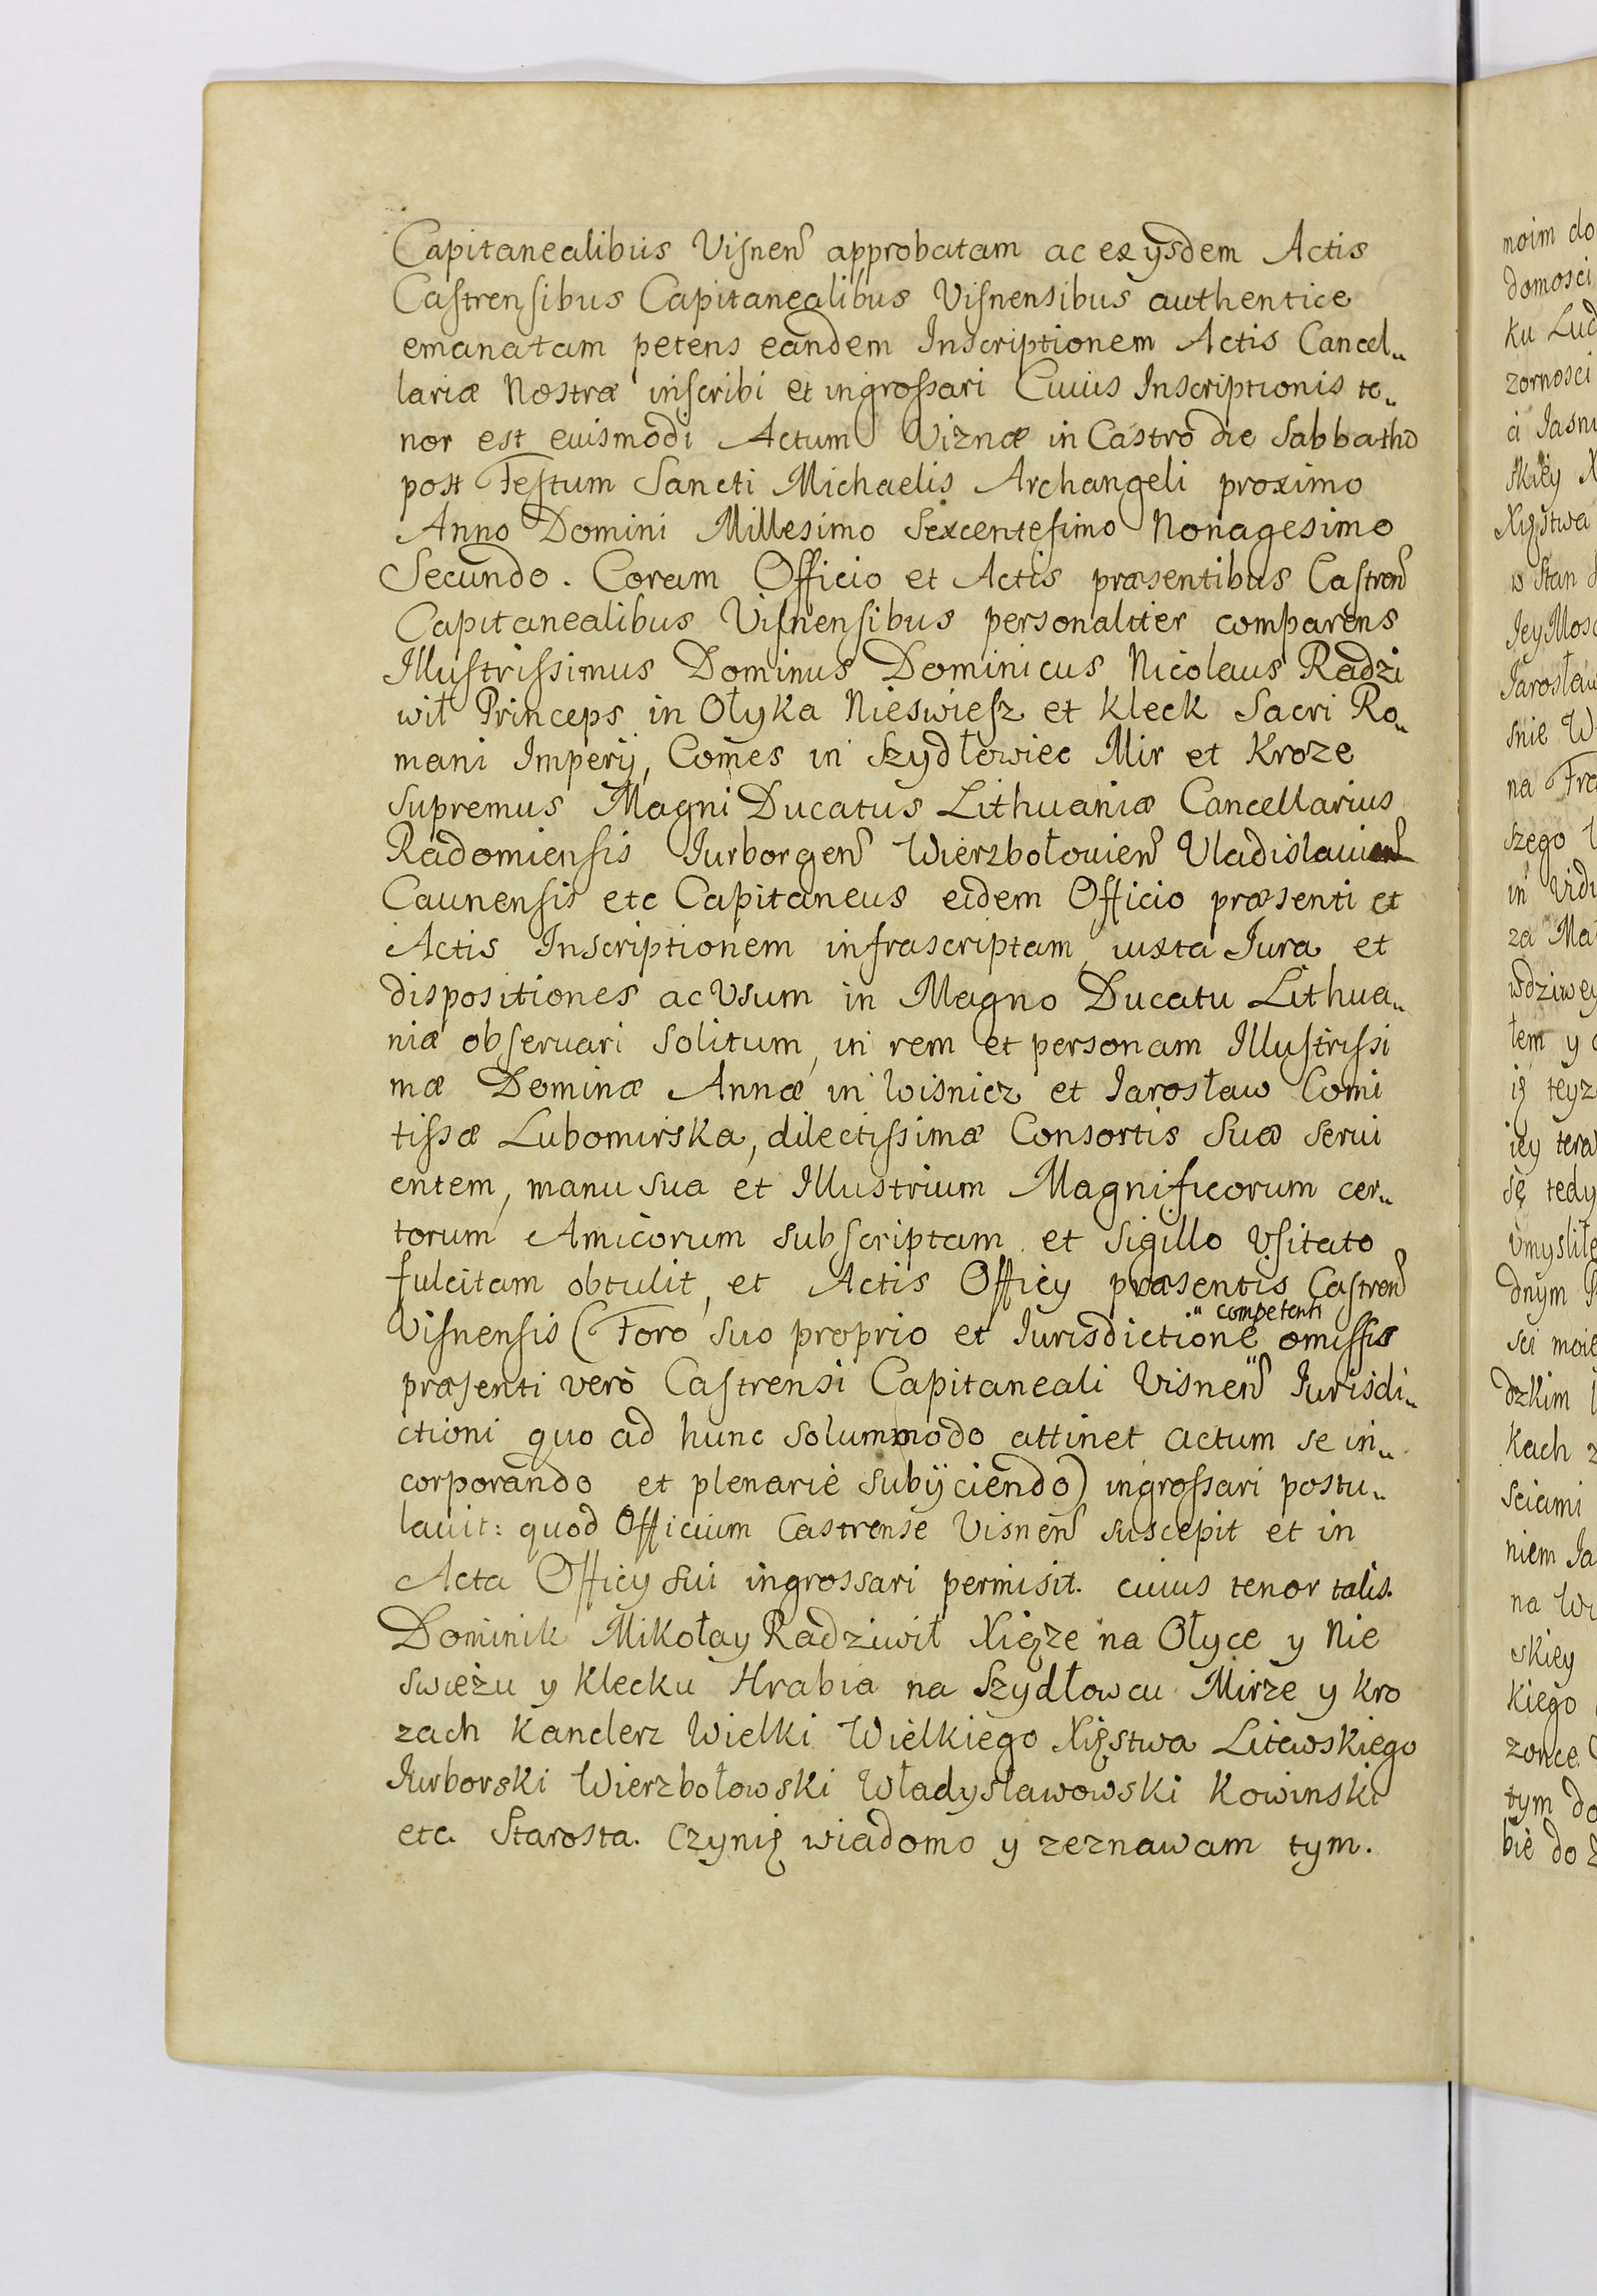 Capitanealibus Visnen approbatam ac ex ijsdem Actis
Castrensibus Capitanealibus Visnensibus authentice
emanatam petens eandem Inscriptionem Actis Cancel„
lariæ Nostræ inscribi et ingrossari Cuius Inscriptionis te„
nor est euismodi Actum Viznæ in Castro die Sabbatho
post Festum Sancti Michaelis Archangeli proximo
Anno Domini Millesimo Sexcentesimo Nonagesimo
Secundo. Coram Officio et Actis præsentibus Castren
Capitanealibus Visnensibus personaliter comparens
Illustrissimus Dominus Dominicus Nicolaus Radzi
wił Princeps in Ołyka Nieswiesz et Kleck Sacri Ro„
mani Imperij, Comes in Szydłowiec Mir et Kroze
Supremus Magni Ducatus Lithuaniæ Cancellarius
Radomiensis Jurborgen Wierzbołouien Vladislauien
Caunensis etc Capitaneus eidem Officio præsenti et
Actis Inscriptionem infrascriptam, iuxta Jura et
dispositiones ac Vsum in Magno Ducatu Lithua„
niæ obseruari solitum, in rem et personam Illustrissi
mæ Dominæ Annæ in Wisnicz et Jarosław Comi
tissæ Lubomirska, dilectissimæ Consortis Suæ serui
entem, manu sua et Illustrium Magnificorum cer„
torum Amicorum subscriptam et Sigillo Vsitato
fulcitam obtulit, et Actis Officij præsentis Castren
Visnensis (Foro suo proprio et Jurisdictione „ competenti omissis
præsenti verò Castrensi Capitaneali Visnen Jurisdi„
ctioni quo ad hunc solummodo attinet actum se in„
corporando et plenariè subijciendo) ingrossari postu„
lauit: quod Officium Castrense Visnen suscepit et in
Acta Officij sui ingrossari permisit. cuius tenor talis.
Dominik Mikołay Radziwił Xiąze na Ołyce y Nie
swieżu y Klecku Hrabia na Szydłowcu Mirze y Kro
zach Kanclerz Wielki Wielkiego Xięstwa Litewskiego
Jurborski Wierzbołowski Władysławowski Kowinski
etc. Starosta. Czynię wiadomo y zeznawam tym.